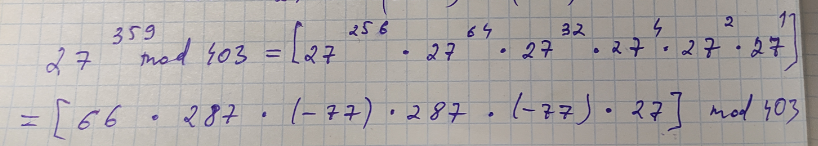 27^359 mod 403 = [27^256 · 27^64 · 27^32 · 27^4 · 27^2 · 27^1]
= [66 · 287 · (-77) · 287 · (-77) · 27] mod 403